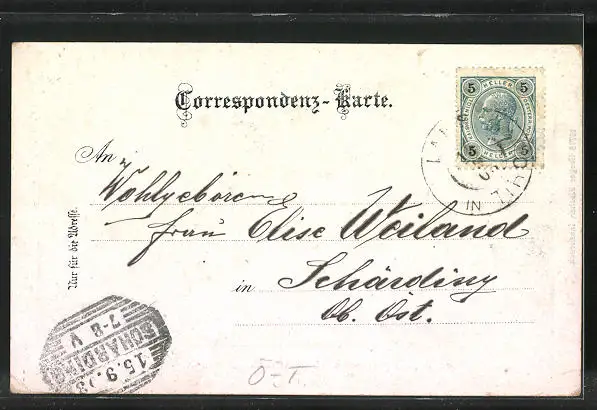 Correspondenz-Karte.
5 HELLER 5
5 HELLER 5
An
Wohlgeboren
Frau Elise Weiland
in Schärding
Ob. Öst.
Nur für die Adresse.
SCHÄRDING
15.9.03
7-8 V
IN
O-T.